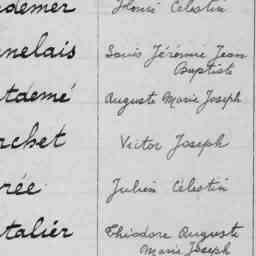 rdemer Henri Célestin
nelais Louis Jérémie Jean
Baptiste
tdemé Auguste Marie Joseph
rchet Victor Joseph
rée Julien Célestin
talier Théodore Auguste
Marie Joseph